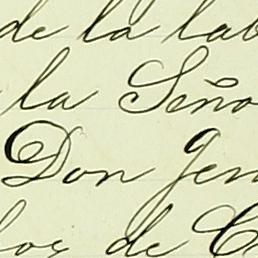 de la lab
la Seño
Don Jen
los de C